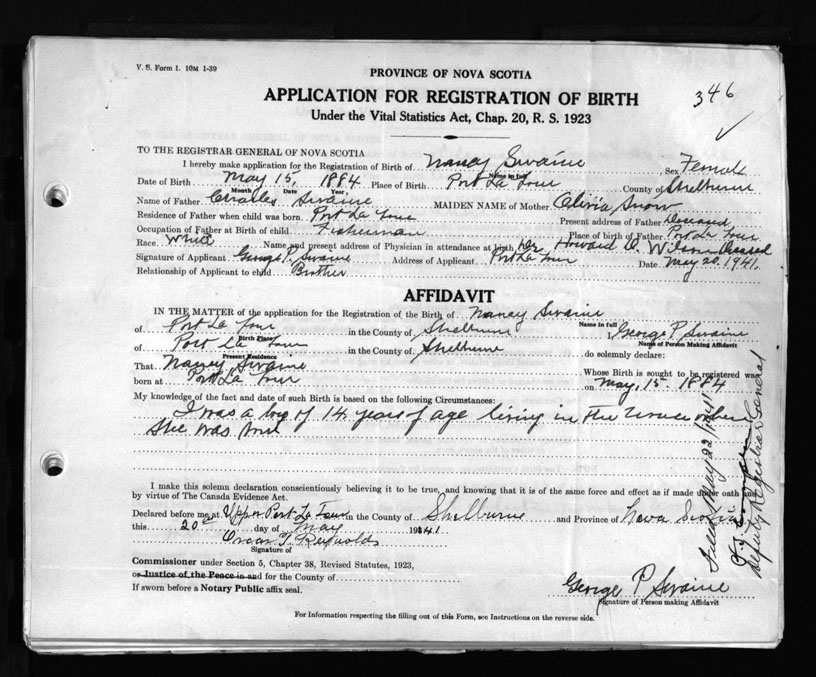 V. S. Form 1. 10M 1-39
346
PROVINCE OF NOVA SCOTIA
APPLICATION FOR REGISTRATION OF BIRTH
Under the Vital Statistics Act, Chap. 20, R. S. 1923
TO THE REGISTRAR GENERAL OF NOVA SCOTIA
I hereby make application for the Registration of Birth of Nancy Swaine Sex Female
Name in full
Date of Birth May 15, 1884 Place of Birth Port La Tour County of Shelburne
Month Date Year,
Name of Father Charles Swaine MAIDEN NAME of Mother Olivia Snow
Residence of Father when child was born Port La Tour Present address of Father Deceased
Occupation of Father at Birth of child Fisherman Place of birth of Father Port La Tour
Race. White Name and present address of Physician in attendance at birth Dr. Howard D. Wilson Deceased
Signature of Applicant George P. Swaine Address of Applicant Port La Tour Date May 20. 1941.
Relationship of Applicant to child Brother
AFFIDAVIT
IN THE MATTER of the application for the Registration of the Birth of Nancy Swaine
Name in full
of Port La Tour in the County of Shelburne George P Swaine
Birth Place Name of Person Making Affidavit
of Port La Tour in the County of Shelburne do solemnly declare:
Present Residence
That Nancy Swaine Whose Birth is sought to be registered was
born at Port La Tour on May, 15. 1884
My knowledge of the fact and date of such Birth is based on the following Circumstances:
I was a boy of 14 years of age living in the house when
She was born
I make this solemn declaration conscientiously believing it to be true, and knowing that it is of the same force and effect as if made under oath and
by virtue of The Canada Evidence Act.
Declared before me at Upper Port La Tour in the County of Shelburne and Province of Nova Scotia
this 20th day of May 1941
Oscar T. Reynolds
Signature of
Commissioner under Section 5, Chapter 38, Revised Statutes, 1923,
or Justice of the Peace in and for the County of
If sworn before a Notary Public affix seal.
George P Swaine
Signature of Person making Affidavit
For Information respecting the filling out of this Form, see Instructions on the reverse.
Filed May 22/1941
Deputy Registrar General